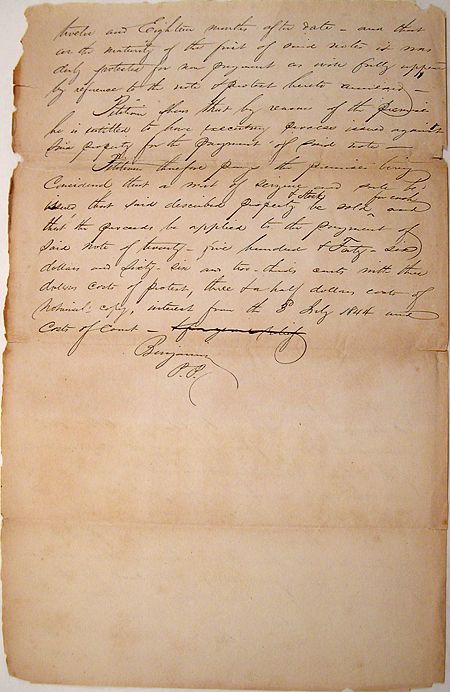 twelve and Eighteen months after date – and that
on the maturity of the first of said notes it was
duly protested for non payment as will fully appear
by reference to the note & protest hereto annexed –
Petitioner shews that by reason of the premises
he is entitled to have executory process issued against
said property for the payment of said note –
Petitioner therefore prays the premises being
Considered that a writ of seizure and sale be
issued that said described property & Stock be sold for cash and
that the proceeds be applied to the payment of
said note of twenty – five hundred & Forty – six
dollars and sixty – six and two – thirds cents with three
dollars costs of protest, three & a half dollars costs of
Notarial copy, interest from the 3d July 1844 and
Costs of Court – 
Benjamin
P.P.